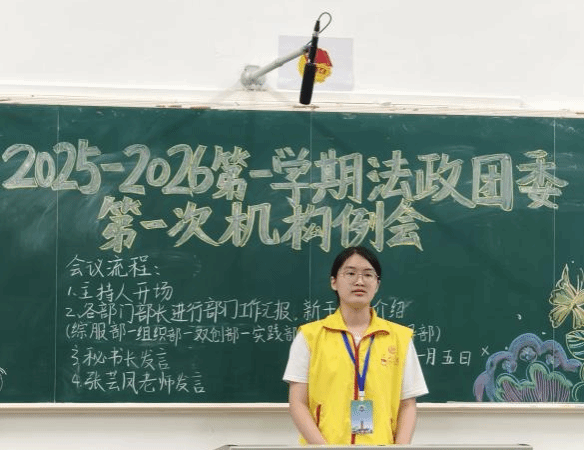 2025-2026第一学期法政团委
第一次机构例会
会议流程：
1.主持人开场
2.各部门部长进行部门工作汇报、新干 介绍
(综服部—组织部—双创部—实践部 部)
3.秘书长发言
4.张芸凤老师发言
一月五日